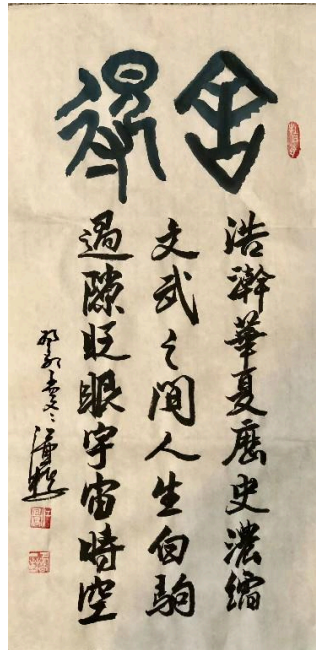 舍得
浩瀚華夏歷史濃縮
文武之間人生白駒
過隙眨眼宇宙時空